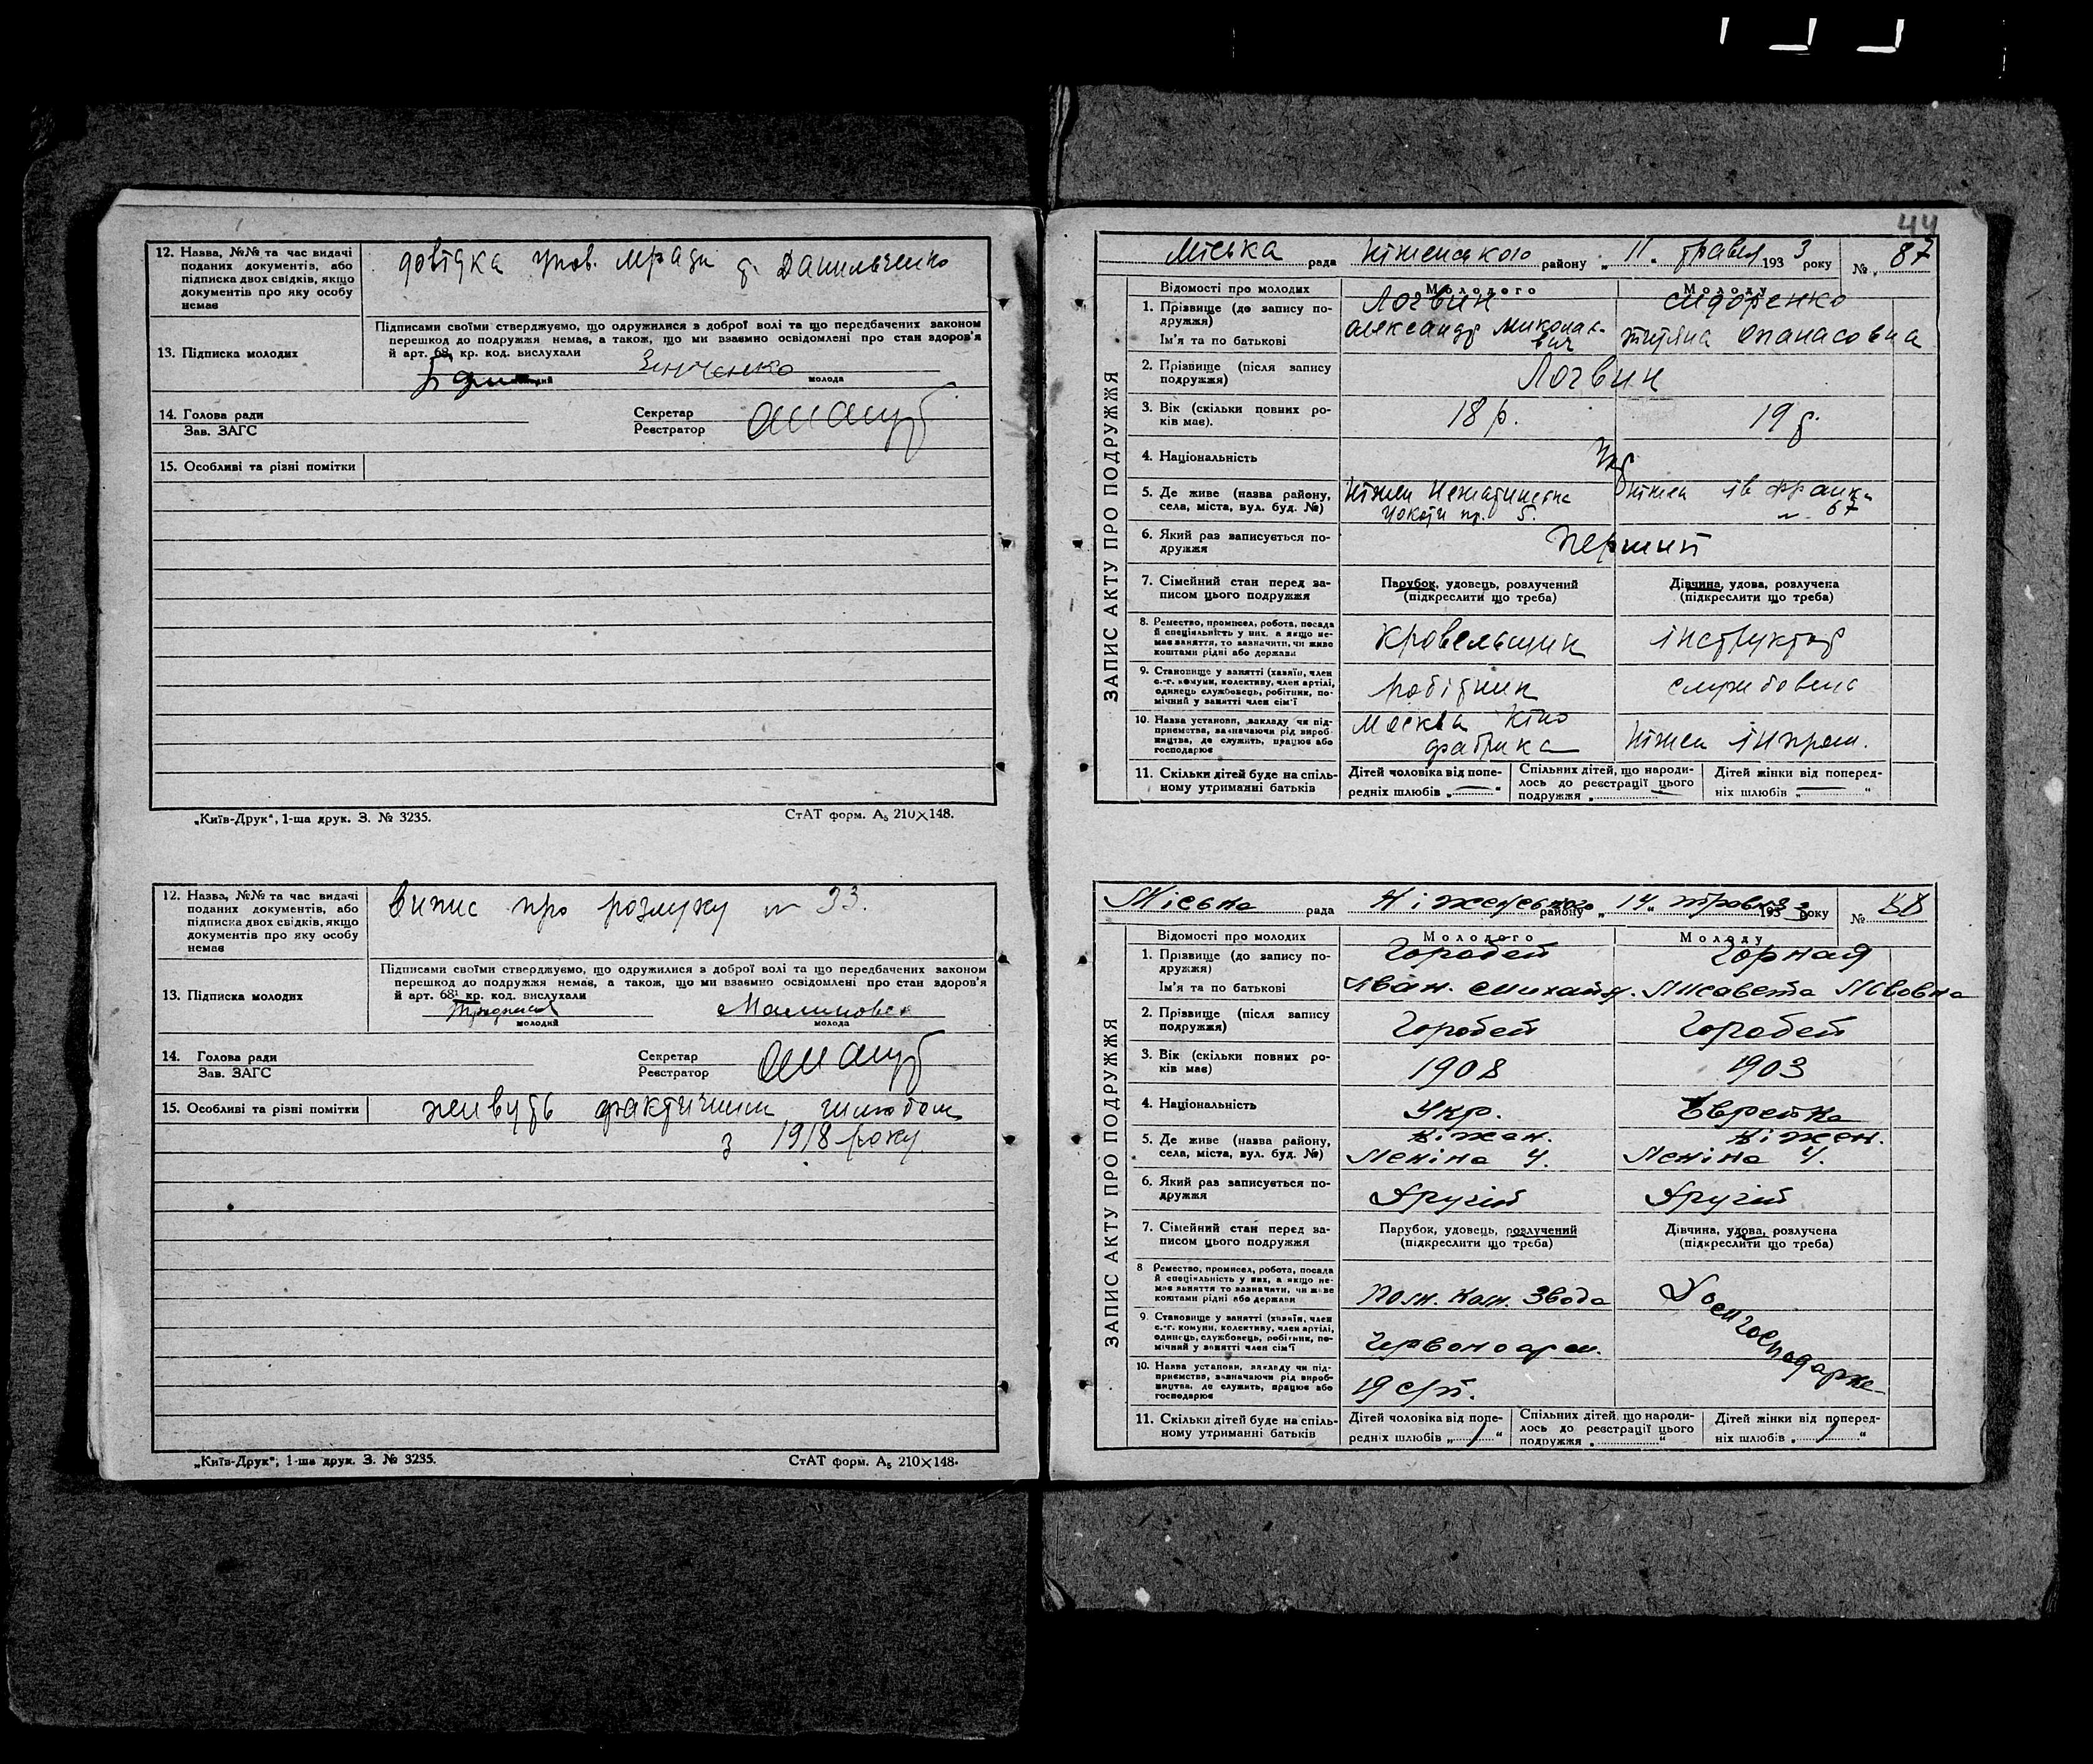 12. Назва, №№ та час видачі
поданих документів, або
підписка двох свідків, якщо
документів про яку особу
немає
довідка упов. мради Данильченко
13. Підписка молодих
Підписами своїми стверджуємо, що одружилися з доброї волі та що передбачених законом
перешкод до подружжя немає, а також, що ми взаємно освідомлені про стан здоров'я
й арт. 68¹ кр. код. вислухали
Зінченко
молода
14. Голова ради
Зав. ЗАГС
Секретар
Реєстратор
15. Особливі та різні помітки
„Київ-Друк", 1-ша друк. З. № 3235.
СтАТ форм. А₅ 210×148.
12. Назва, №№ та час видачі
поданих документів, або
підписка двох свідків, якщо
документів про яку особу
немає
Випис про розлуку № 33.
13. Підписка молодих
Підписами своїми стверджуємо, що одружилися з доброї волі та що передбачених законом
перешкод до подружжя немає, а також, що ми взаємно освідомлені про стан здоров'я
й арт. 68¹ кр. код. вислухали
молодий
молода
14. Голова ради
Зав. ЗАГС
Секретар
Реєстратор
15. Особливі та різні помітки
живуть фактичним шлюбом
з 1918 року
„Київ-Друк", 1-ша друк. З. № 3235.
СтАТ форм. А₅ 210×148.
44
ЗАПИС АКТУ ПРО ПОДРУЖЖЯ
Міська рада Ніженського району „ 11 „ травня 193 3 року № 87
Відомості про молодих Молодого Молоду
1. Прізвище (до запису по-
дружжя)
Ім'я та по батькові
Логвин
Олександр Миколає-
вич
Сидоренко
Тетяна Опанасовна
2. Прізвище (після запису
подружжя)
Логвин
3. Вік (скільки повних ро-
ків має).
18 р. 19 р.
4. Національність
Укр
5. Де живе (назва району,
села, міста, вул. буд. №)
Ніжен
5.
Ніжен Ів Франка
№ 67
6. Який раз записується по-
дружжя
Перший
7. Сімейний стан перед за-
писом цього подружжя
Парубок, удовець, розлучений
(підкреслити що треба)
Дівчина, удова, розлучена
(підкреслити що треба)
8. Ремество, промисел, робота, посада
й спеціяльність у них, а якщо не-
має заняття, то зазначити, чи живе
коштами рідні або держави
кровельщик інструктор
9. Становище у занятті (хазяїн, член
с.-г. комуни, колективу, член артілі,
одинець службовець, робітник, по-
мічний у занятті член сім'ї
робітник службовець
10. Назва установи, закладу чи під-
приємства, зазначаючи рід вироб-
ництва, де служить, працює або
господарює
Москва Кіно
фабрика
Ніжен Інпром.
11. Скільки дітей буде на спіль-
ному утриманні батьків
Дітей чоловіка від попе-
редніх шлюбів „ — "
Спільних дітей, що народи-
лось до реєстрації цього
подружжя „ — "
Дітей жінки від поперед-
ніх шлюбів „ — "
ЗАПИС АКТУ ПРО ПОДРУЖЖЯ
Міська рада Ніженського району „ 14 „ травня 193 3 року № 88
Відомості про молодих Молодого Молоду
1. Прізвище (до запису по-
дружжя)
Ім'я та по батькові
Горобей
Іван. Михайл.
Горная
Лисавета Львовна
2. Прізвище (після запису
подружжя)
Горобей Горобей
3. Вік (скільки повних ро-
ків має)
1908 1903
4. Національність
Укр. Еврейка
5. Де живе (назва району,
села, міста, вул. буд. №)
Ніжен.
Леніна 4.
Ніжен.
Леніна 4.
6. Який раз записується по-
дружжя
Другий Другий
7. Сімейний стан перед за-
писом цього подружжя
Парубок, удовець, розлучений
(підкреслити що треба)
Дівчина, удова, розлучена
(підкреслити що треба)
8 Ремество, промисел, робота, посада
й спеціяльність у них, а якщо не-
має заняття то зазначити, чи живе
коштами рідні або держави
Пом. Ком. Звода
Домгосподарка
9. Становище у занятті (хазяїн, член
с.-г. комуни, колективу, член артілі,
одинець, службовець, робітник, по-
мічний у занятті член сім'ї
Червоноарм.
10. Назва установи, закладу чи під-
приємства, зазначаючи рід вироб-
ництва, де служить, працює або
господарює
11. Скільки дітей буде на спіль-
ному утриманні батьків
Дітей чоловіка від попе-
редніх шлюбів „ 1 "
Спільних дітей, що народи-
лось до реєстрації цього
подружжя „ "
Дітей жінки від поперед-
ніх шлюбів „ 1 "